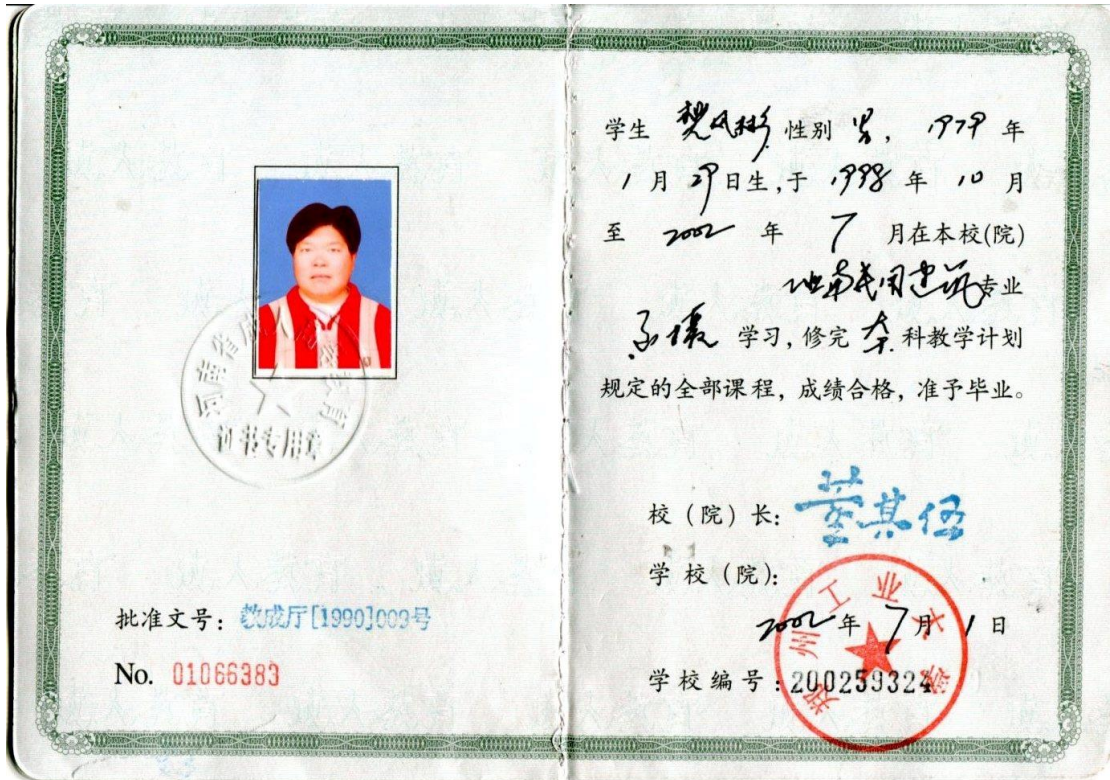 河南省成人高等教育
证书专用章
批准文号：教成厅[1990]003号
No. 01066383
学生 樊凤彬 性别 男，1979 年
1 月 29 日生,于 1998 年 10 月
至 2002 年 7 月在本校(院)
工业与民用建筑专业
函授 学习, 修完 本 科教学计划
规定的全部课程，成绩合格，准予毕业。
校（院）长: 董其伍
学 校（院）:
郑州工业大学
2002 年 7 月 1 日
学校编号:200259324